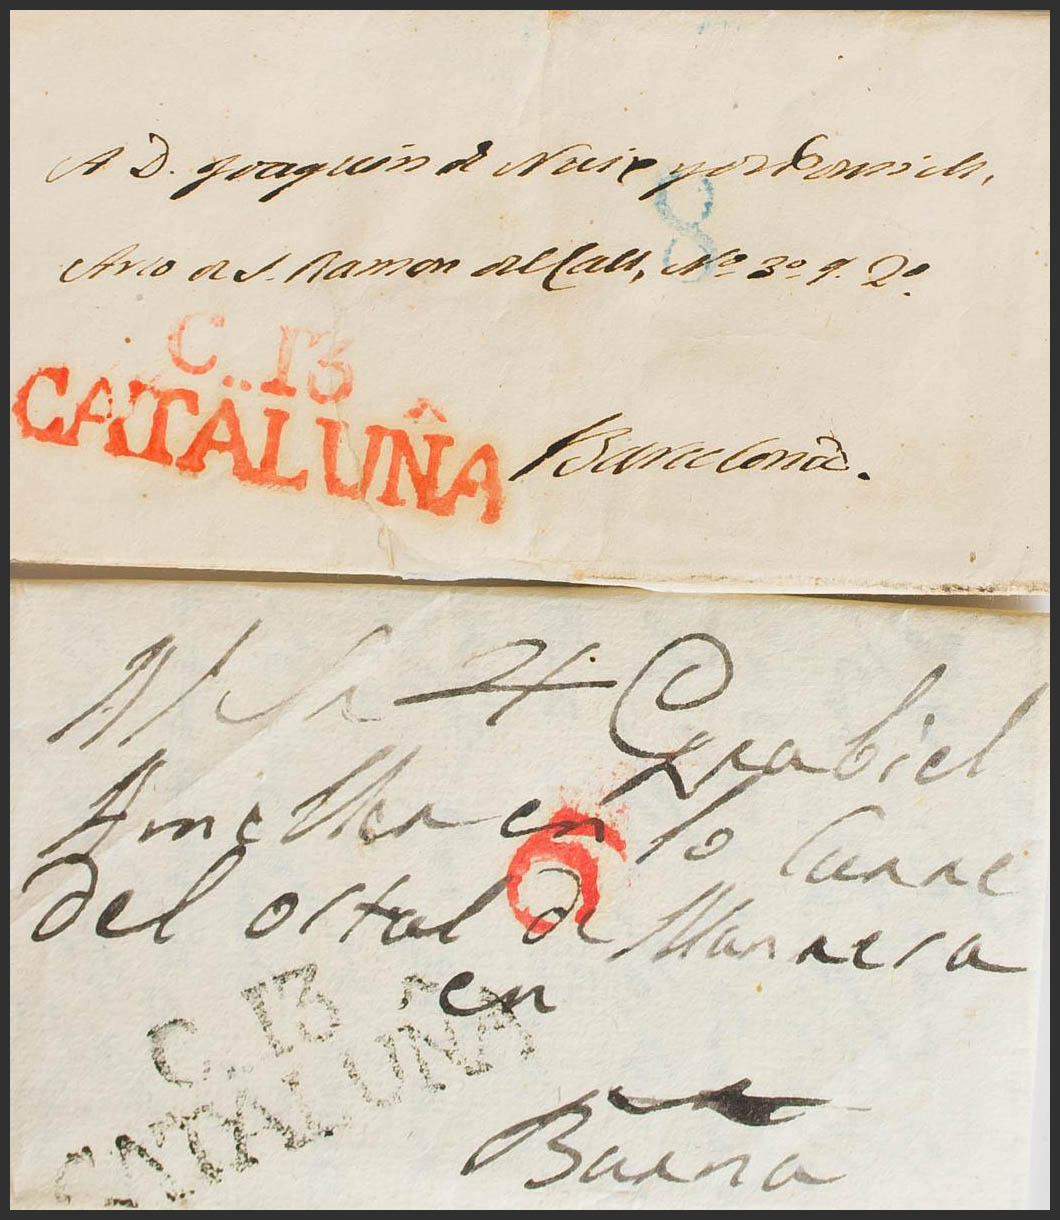 A D. Joaquin de Nuix y de
8
Arco de S. Ramon del Call, Nº 3º q. 2º.
C..13
CATALUÑA
Barcelona.
Al Sr Dn Grabiel
Amella en lo Carre
6
del ostal de Manresa
en
C..13
CATALUÑA
Barna